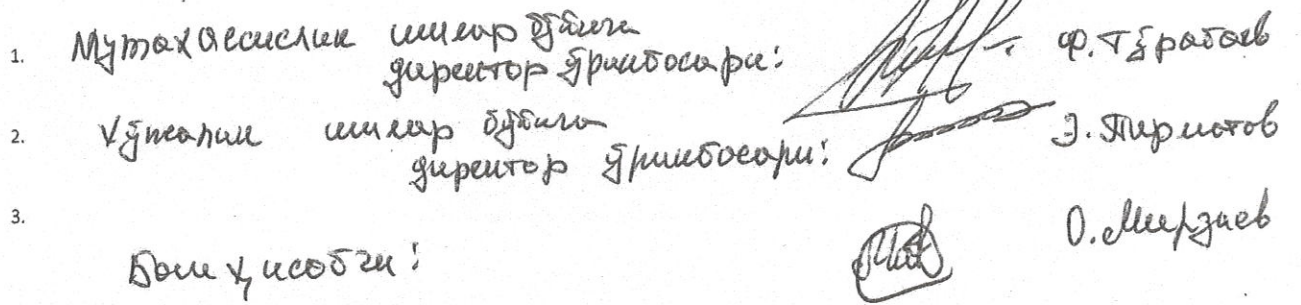 1. Мутахассислик ишлар бўйича
директор ўринбосари: Ф. Тўрабаев
2. Хўжалик ишлар бўйича
директор ўринбосари: Э. Тирматов
3. О. Мирзаев
Бош ҳисобчи: